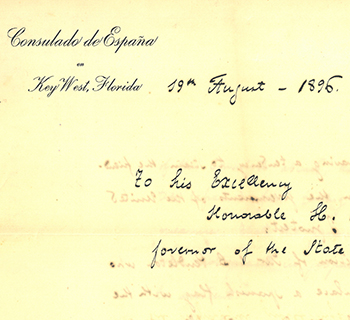 Consulado de España
en
Key West, Florida 19th August - 1896.
To his Excellency
Honorable H.
Governor of the State